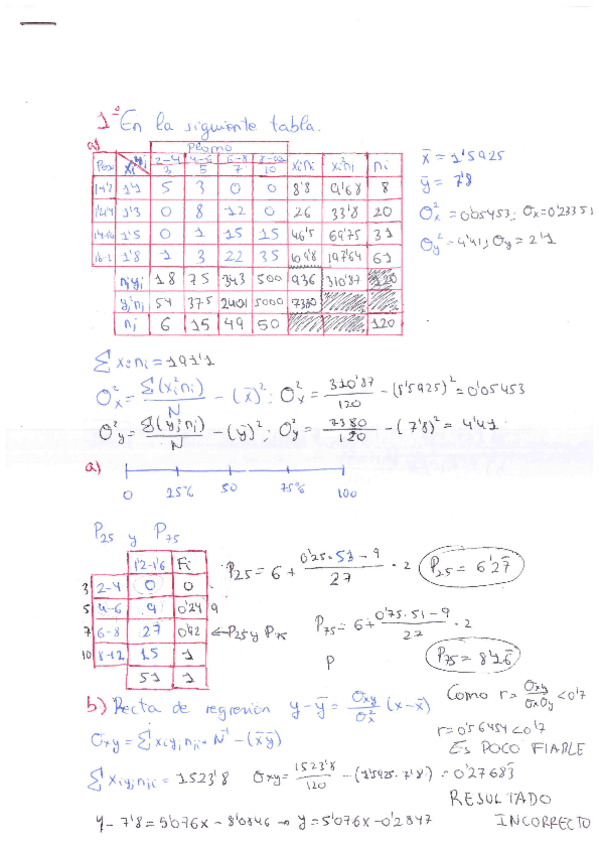 1º En la siguiente tabla.
a)
Plomo
Pox xi yi 2-4 4-6 6-8 8-12 xini xi²ni ni
3 5 7 10
1-1'2 1'1 5 3 0 0 8'8 9'68 8
1'2-1'4 1'3 0 8 12 0 26 33'8 20
1'4-1'6 1'5 0 1 15 15 46'5 69'75 31
1'6-2 1'8 1 3 22 35 109'8 197'64 61
njyj 18 75 343 500 936 310'87 120
yj²nj 54 375 2401 5000 7380
nj 6 15 49 50 120
x̄ = 1'5925
ȳ = 7'8
σx² = 0'05453; σx = 0'23351
σy² = 4'41; σy = 2'1
Σ xini = 191'1
σx² = Σ(xi²ni)/N - (x̄)²; σx² = 310'87/120 - (1'5925)² = 0'05453
σy² = Σ(yj²nj)/N - (ȳ)²; σy² = 7380/120 - (7'8)² = 4'41
a)
0 25% 50 75% 100
P25 y P75
1'2-1'6 Fi
3 2-4 0 0
5 4-6 9 0'24 9
7 6-8 27 0'42 ← P25 y P75
10 8-12 15 1
51 1
P25 = 6 + (0'25·51 - 9)/27 · 2 P25 = 6'27
P75 = 6 + (0'75·51 - 9)/27 · 2
P P75 = 8'16
b) Recta de regresión y - ȳ = σxy/σx² (x - x̄)
Como r = σxy/σxσy < 0'7
σxy = Σ xiyjnji · N⁻¹ - (x̄ȳ)
r = 0'56454 < 0'7
ES POCO FIABLE
Σ xiyjnji = 1523'8 σxy = 1523'8/120 - (1'5925·7'8) = 0'27683
RESULTADO
INCORRECTO
y - 7'8 = 5'076x - 8'0846 → y = 5'076x - 0'2847